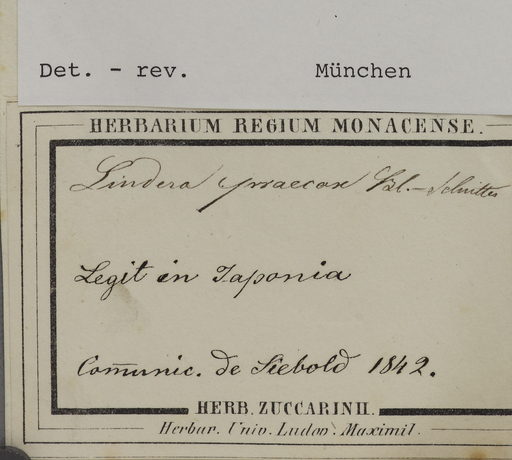 Det. - rev. München
HERBARIUM REGIUM MONACENSE.
Lindera praecox Bl. -
Legit in Japonia
Comunic. de Siebold 1842.
HERB. ZUCCARINII.
Herbar. Univ. Ludov. Maximil.